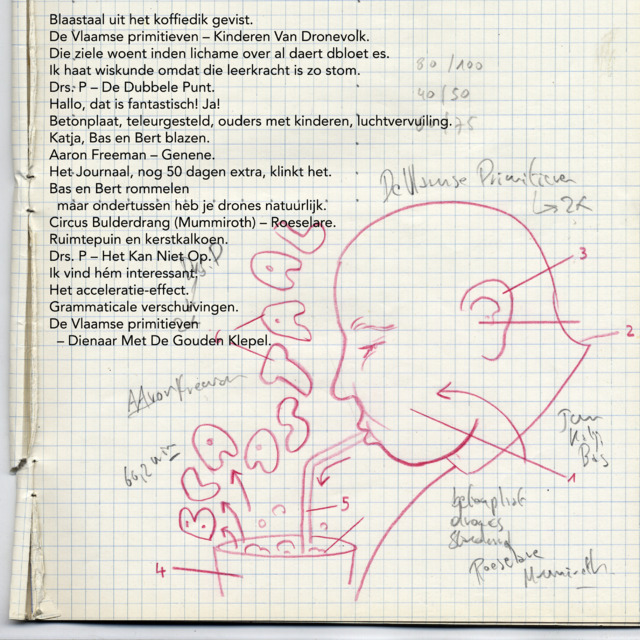 Blaastaal uit het koffiedik gevist.
De Vlaamse primitieven – Kinderen Van Dronevolk.
Die ziele woent inden lichame over al daert dbloet es.
Ik haat wiskunde omdat die leerkracht is zo stom.
Drs. P – De Dubbele Punt.
Hallo, dat is fantastisch! Ja!
Betonplaat, teleurgesteld, ouders met kinderen, luchtvervuiling.
Katja, Bas en Bert blazen.
Aaron Freeman – Genene.
Het Journaal, nog 50 dagen extra, klinkt het.
Bas en Bert rommelen
maar ondertussen heb je drones natuurlijk.
Circus Bulderdrang (Mummiroth) – Roeselare.
Ruimtepuin en kerstkalkoen.
Drs. P – Het Kan Niet Op.
Ik vind hém interessant!
Het acceleratie-effect.
Grammaticale verschuivingen.
De Vlaamse primitieven
– Dienaar Met De Gouden Klepel.
80/100
40/50
75
De Vlaamse Primitieven
2x
Drs. P
3
2
1
5
4
BLAASTAAL
AAron Freeman
betonplaat
drones
Roeselare
Mummiroth